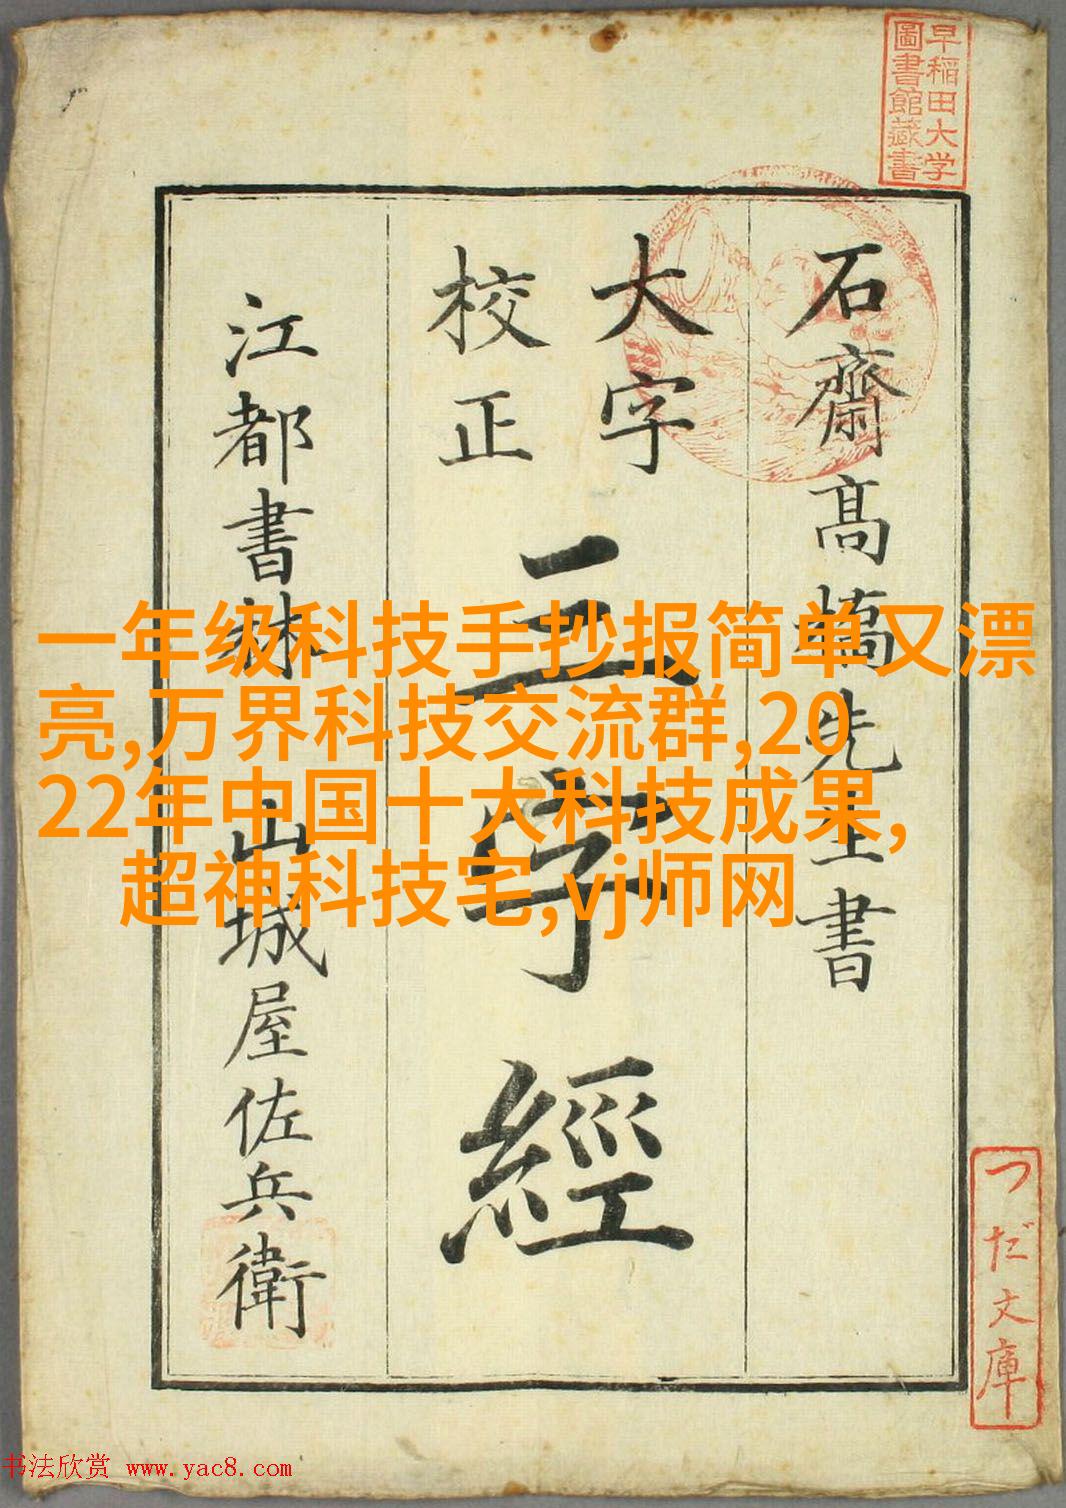 早稲田大学
圖書館藏書
石齋髙橋先生書
大字
校正
三字經
江都書林 山城屋佐兵衛
一年级科技手抄报简单又漂
亮,万界科技交流群,20
22年中国十大科技成果,
超神科技宅,vj师网
つだ文庫
书法欣赏 www.yac8.com